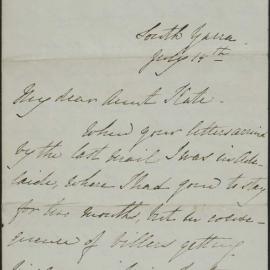 South Yarra
July 14th
My dear Aunt Kate.
When your letters arrived
by the last mail I was in Ade-
laide, where I had gone to stay
for two months, but in conse-
quence of Villers getting